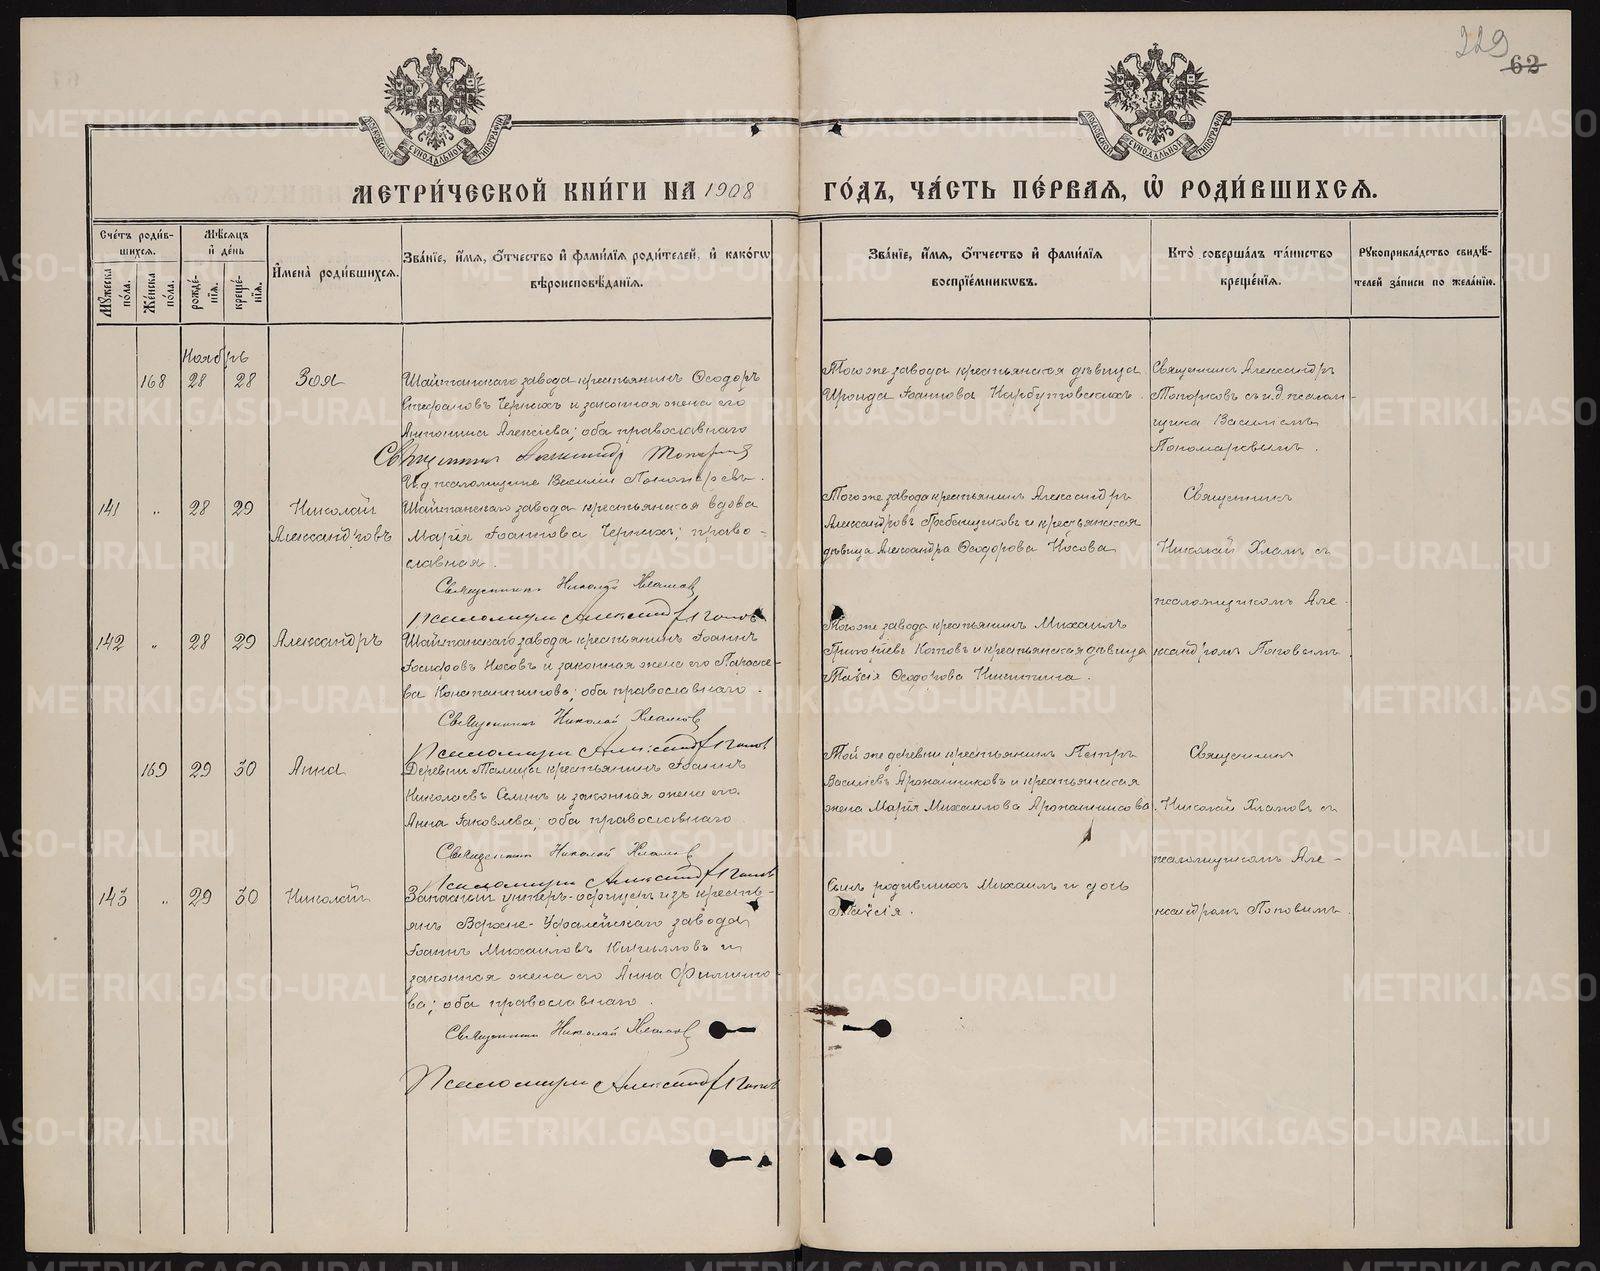 229
62
МЕТРИ́ЧЕСКОЙ КНИ́ГИ НА 1908 ГО́ДЪ, ЧА́СТЬ ПЕ́РВАѦ, Ѽ РОДИ́ВШИХСѦ.
Сче́тъ роди́в-
шихсѧ.
Мꙋжеска по́ла.
Же́нска по́ла.
Мѣ́сѧцъ
и҆ де́нь
рожде́-нїѧ.
креще́-нїѧ.
И҆мена̀ роди́вшихсѧ.
Зва́нїе, и҆́мѧ, ѻ҆́тчество и҆ фами́лїѧ роди́телей, и҆ како́гѡ
вѣроисповѣ́данїѧ.
Зва́нїе, и҆́мѧ, ѻ҆́тчество и҆ фами́лїѧ
воспрїе́мникѡвъ.
Кто̀ соверша́лъ та́инство
креще́нїѧ.
Рꙋкоприкла́дство свидѣ́-
телей за́писи по жела́нїю.
Ноябрь
168 28 28 Зоя
Шайтанскаго завода крестьянинъ Ѳеодоръ
Стефановъ Черныхъ и законная жена его
Антонина Алексіева; оба православнаго
Священникъ Александр Топорков
И.д. псаломщика Василій Пономаревъ.
Тогоже завода крестьянская дѣвица
Ираида Іоаннова Карбутовскихъ.
Священникъ Александръ
Топорковъ съ и.д. псалом-
щика Василіемъ
Пономаревымъ.
141 „ 28 29 Николай
Александровъ
Шайтанскаго завода крестьянская вдова
Марія Іоаннова Черныхъ; право-
славная.
Священникъ Николай Хламов
Псаломщик Александр Попов
Тогоже завода крестьянинъ Александръ
Александровъ Гребенщиковъ и крестьянская
дѣвица Александра Ѳеодорова Носова
Священникъ
Николай Хламъ съ
псаломщикомъ Але-
142 „ 28 29 Александръ
Шайтанскаго завода крестьянинъ Іоаннъ
Іосифовъ Носовъ и законная жена его Параске-
ва Константинова; оба православнаго.
Священникъ Николай Хламов
Псаломщик Александр Попов
Тогоже завода крестьянинъ Михаилъ
Григоріевъ Котовъ и крестьянская дѣвица
Таисія Ѳеодорова Никитина.
ксандромъ Поповымъ.
169 29 30 Анна
Деревни Талицы крестьянинъ Іоаннъ
Николаевъ Селинъ и законная жена его
Анна Іаковлева; оба православнаго
Священникъ Николай Хламов
Псаломщик Александр Попов
Той же деревни крестьянинъ Петръ
Василіевъ и крестьянская
жена Марія Михаилова
Священникъ
Николай Хламовъ съ
псаломщикомъ Але-
143 „ 29 30 Николай
Запасный унтеръ-офицеръ изъ кресть-
янъ Верхне-Уфалейскаго завода
Іоаннъ Михаиловъ Кирилловъ и
законная жена его Анна Филиппо-
ва; оба православнаго.
Священникъ Николай Хламов
Псаломщик Александр Попов
Сынъ родившихъ Михаилъ и дочь
Таисія.
ксандромъ Поповымъ.
METRIKI.GASO-URAL.RU